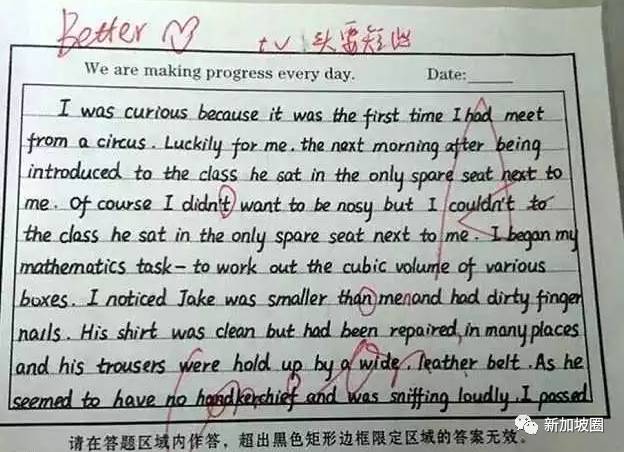 Better
tv 头要短些
We are making progress every day. Date:
I was curious because it was the first time I had meet
from a circus. Luckily for me. the next morning after being
introduced to the class he sat in the only spare seat next to
me. Of course I didn't want to be nosy but I couldn't to
the class he sat in the only spare seat next to me. I began my
mathematics task - to work out the cubic volume of various
boxes. I noticed Jake was smaller than men and had dirty finger
nails. His shirt was clean but had been repaired, in many places
and his trousers were hold up by a wide, leather belt. As he
seemed to have no handkerchief and was sniffing loudly. I passed
请在答题区域内作答，超出黑色矩形边框限定区域的答案无效。
新加坡圈